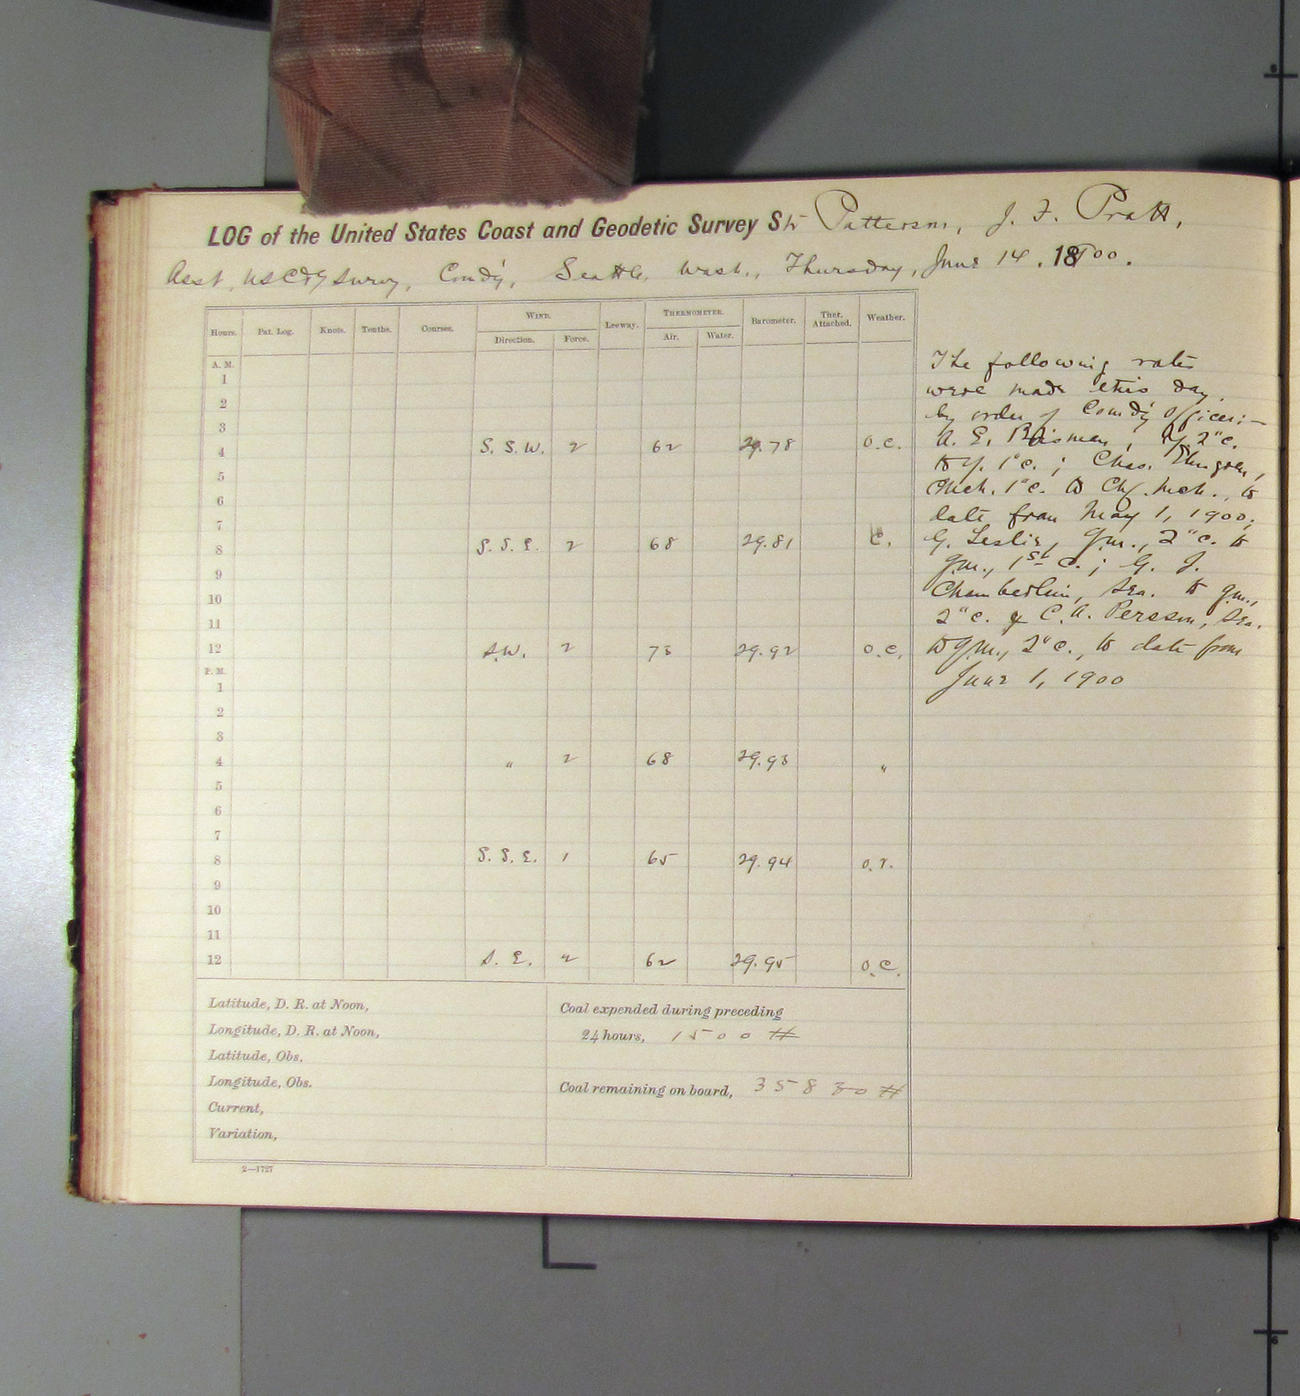 LOG of the United States Coast and Geodetic Survey Str Patterson, J. F. Pratt,
Asst. USC&G Survey, Comdg, Seattle, Wash., Thursday, June 14, 1900.
Hours. Pat. Log. Knots. Tenths. Courses. WIND. Leeway. THERMOMETER. Barometer. Ther. Attached. Weather.
Direction. Force. Air. Water.
A. M.
1
2
3
4 S. S. W. 2 62 29.78 o.c.
5
6
7
8 S. S. E. 2 68 29.81 c.
9
10
11
12 S.W. 2 73 29.92 o.c.
P. M.
1
2
3
4 " 2 68 29.93 "
5
6
7
8 S. S. E. 1 65 29.94 o.r.
9
10
11
12 S. E. 2 62 29.95 o.c.
The following rates
were made this day
by order of Comdg Officer:—
A. E. 2"c.
to y. 1"c.; Chas.
Mch. 1"c. to Chf. Mch., to
date from May 1, 1900;
G. Leslie, qm., 2"c. to
qm., 1st c.; G. J.
Chamberlin, Sea. to qm.,
2"c. & C. A. Persson, Sea.
to qm., 2"c., to date from
June 1, 1900
Latitude, D. R. at Noon,
Longitude, D. R. at Noon,
Latitude, Obs.
Longitude, Obs.
Current,
Variation,
Coal expended during preceding
24 hours, 1500 #
Coal remaining on board, 35830 #
2—1727